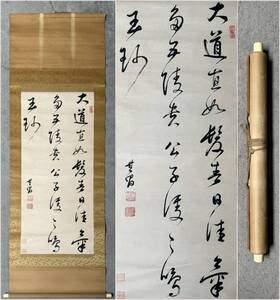 大道直如髮春日佳氣
多五陵貴公子雙々鳴
玉珂
其昌
大道直如髮春日佳氣
多五陵貴公子雙々鳴
玉珂
其昌